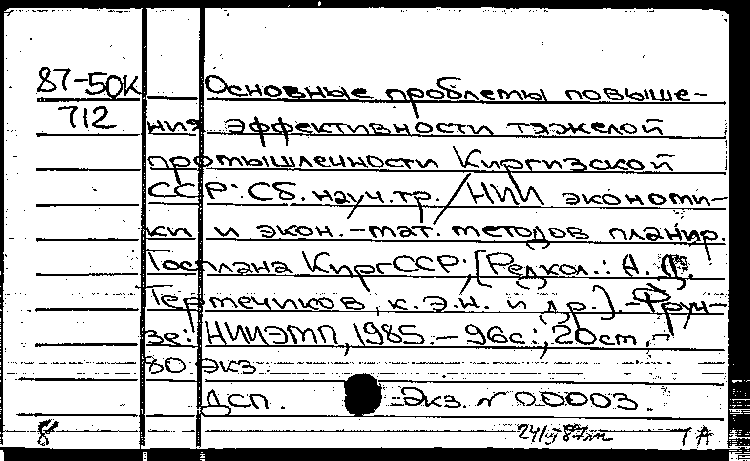 87-50К Основные проблемы повыше-
712 ния эффективности тяжелой
промышленности Киргизской
ССР: Сб. науч. тр. / НИИ экономи-
ки и экон.-мат. методов планир.
Госплана КиргССР; [Редкол.: А. Д.
Гертечиков, к.э.н. и др.]. - Фрун-
зе: НИИЭМП, 1985. - 96с.; 20см. -
80 экз.
ДСП. Экз. № 00003.
8 1 А